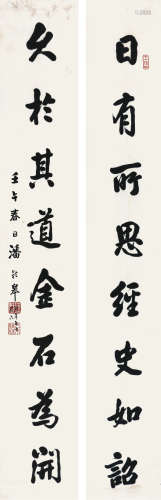 日有所思經史如詔
久於其道金石為開
壬午春日潘齡皋